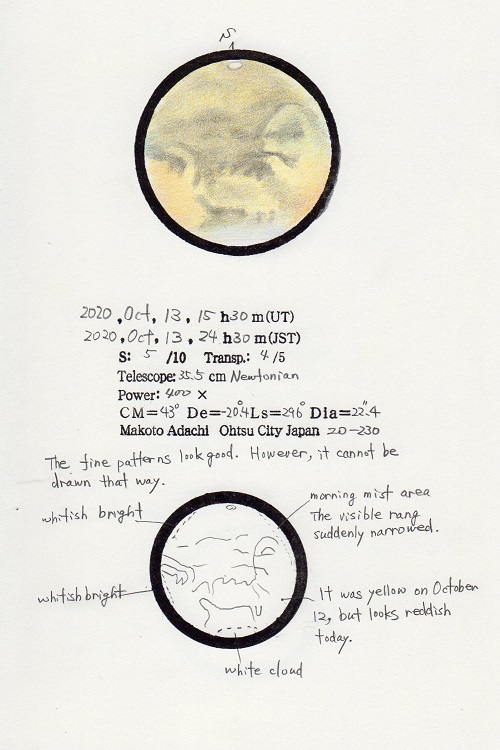 S
2020, Oct, 13, 15 h30 m(UT)
2020, Oct, 13, 24 h30 m(JST)
S: 5 /10 Transp.: 4 /5
Telescope: 35.5 cm Newtonian
Power: 400 ×
CM=43° De=-20.°4 Ls=296° Dia=22."4
Makoto Adachi Ohtsu City Japan 20-230
The fine patterns look good. However, it cannot be
drawn that way.
whitish bright
morning mist area
The visible rang
suddenly narrowed.
whitish bright
It was yellow on October
12, but looks reddish
today.
white cloud